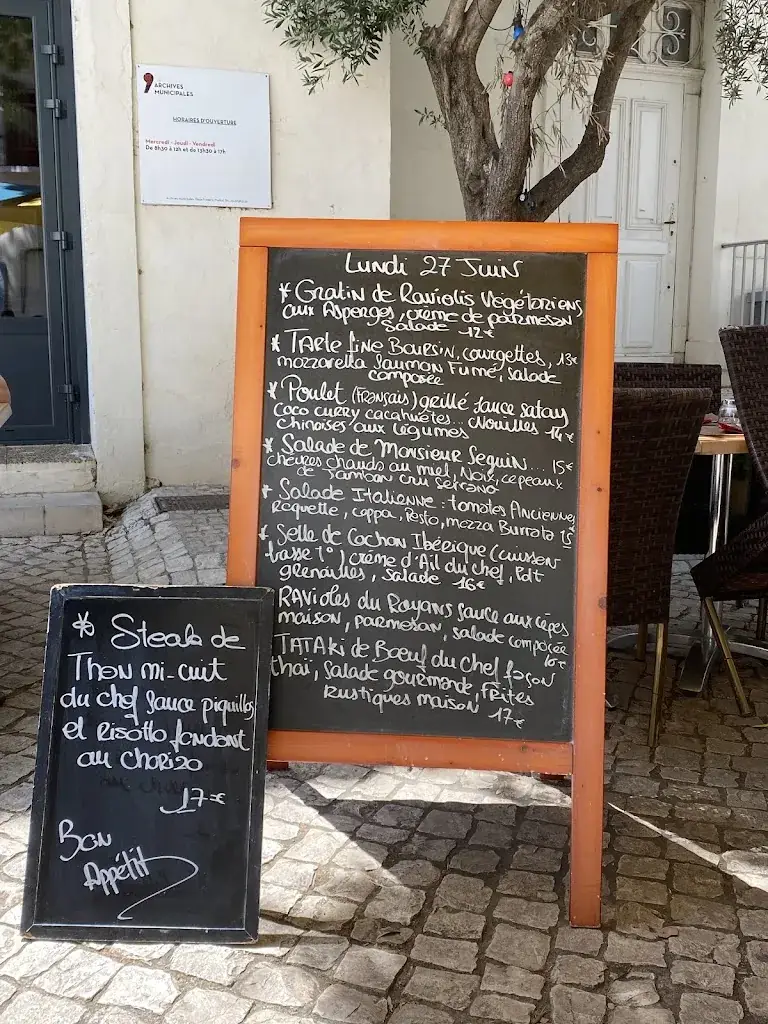 ARCHIVES
MUNICIPALES
HORAIRES D'OUVERTURE
Mercredi - Jeudi - Vendredi
De 8h30 à 12h et de 13h30 à 17h
Lundi 27 Juin
* Gratin de Raviolis Végétariens
aux Asperges, crème de parmesan
Salade 12€
* Tarte fine Boursin, courgettes, 13€
mozzarella Saumon Fumé, salade
composée
* Poulet (Français) grillé sauce satay
coco curry cacahuètes... Nouilles 14€
chinoises aux légumes
* Salade de Monsieur Seguin... 15€
chèvres chauds au miel, Noix, cepeaux
de Jambon cru serrano
+ Salade Italienne : tomates Anciennes,
Roquette, coppa, Pesto, mozza Burrata 15
Selle de Cochon Ibérique (cuisson
basse T°) crème d'Ail du chef, Pdt
grenailles, salade 16€
RAVioles du Royans sauce aux cèpes
maison, parmesan, salade composée
16€
TATAki de Boeuf du chef façon
thaï, salade gourmande, Frites
Rustiques maison 17€
* Steak de
Thon mi-cuit
du chef sauce piquillos
et Risotto fondant
au chorizo
17€
Bon
Appétit